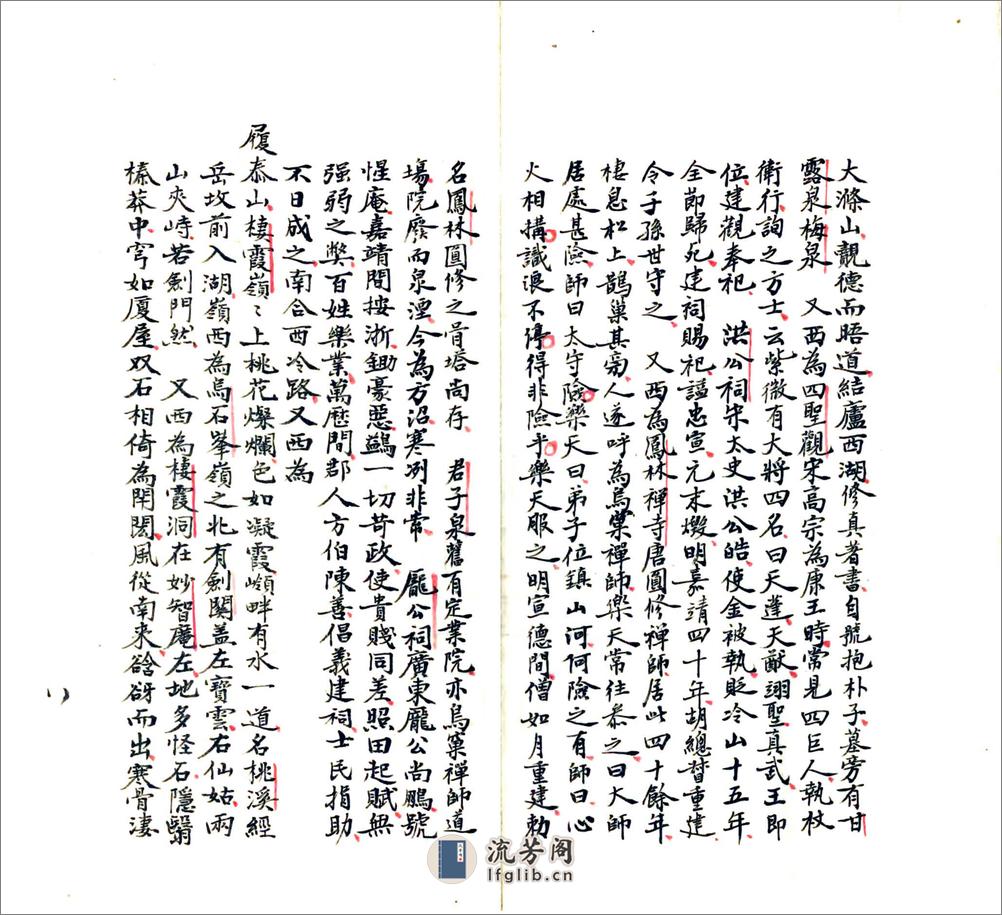 大滌山覩德而晤道結廬西湖修真著書自號抱朴子墓旁有甘
露泉梅泉 又西為四聖觀宋高宗為康王時常見四巨人執杖
衛行詢之方士云紫微有大將四名曰天蓬天猷翊聖真武王即
位建觀奉祀 洪公祠宋太史洪公皓使金被執貶冷山十五年
全節歸死建祠賜祀謚忠宣元末燬明嘉靖四十年胡總督重建
令子孫世守之 又西為鳳林禪寺唐圓修禪師居此四十餘年
棲息松上鵲巢其旁人遂呼為烏窠禪師樂天常往參之曰大師
居處甚險師曰太守險樂天曰弟子位鎮山河何險之有師曰心
火相搆識浪不停得非險乎樂天服之明宣德間僧如月重建勅
名鳳林圓修之骨塔尚存 君子泉舊有定業院亦烏窠禪師道
塲院廢而泉湮今為方沼寒冽非常 龐公祠廣東龐公尚鵬號
惺庵嘉靖間按浙鋤豪惡蠲一切苛政使貴賤同差照田起賦無
强弱之獘百姓樂業萬歷間郡人方伯陳善倡義建祠士民指助
不日成之南合西冷路又西為
履泰山棲霞嶺〻上桃花爛爛色如凝霞嶺畔有水一道名桃溪經
岳坟前入湖嶺西為烏石峯嶺之北有劍關盖左寶雲右仙姑兩
山夾峙若劍門然 又西為棲霞洞在妙智庵左地多怪石隱翳
榛莽中穹如厦屋双石相倚為閈閎風從南来谽谺而出寒骨淒
流芳阁
lfglib.cn